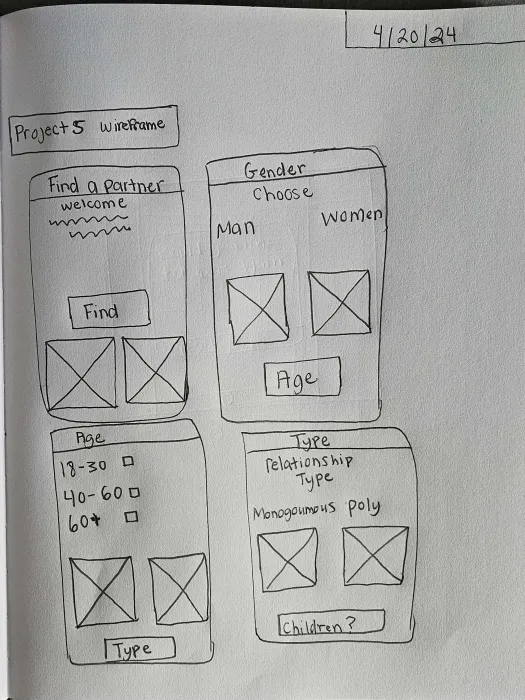 4/20/24
Project 5 wireframe
Find a partner
welcome
Find
Gender
Choose
Man Women
Age
Age
18-30
40-60
60+
Type
Type
relationship
Type
Monogoumous poly
Children?